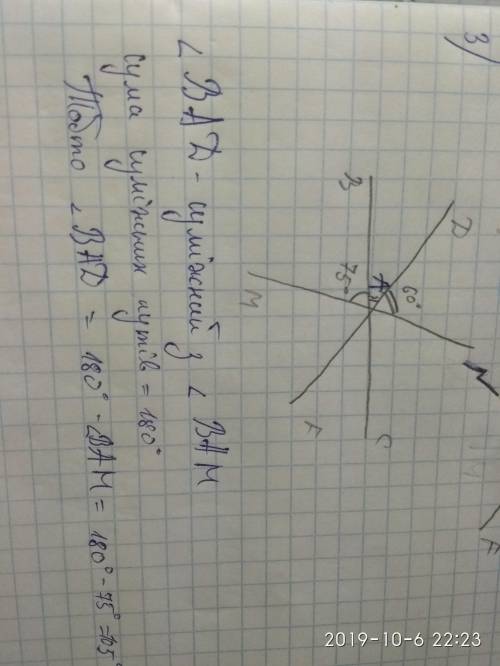 3)
B
D
75°
A
60°
N
M
F
C
M
F
∠ BAD - суміжний з ∠ BAM
Сума суміжних кутів = 180°
Тобто ∠ BAD = 180° - ∠BAM = 180° - 75° = 105°
2019-10-6 22:23